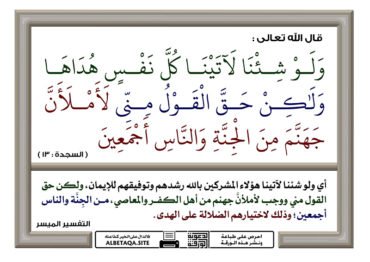 قال الله تعالى :
وَلَوْ شِئْنَا لَآتَيْنَا كُلَّ نَفْسٍ هُدَاهَا
وَلَٰكِنْ حَقَّ الْقَوْلُ مِنِّي لَأَمْلَأَنَّ
جَهَنَّمَ مِنَ الْجِنَّةِ وَالنَّاسِ أَجْمَعِينَ
( السجدة : ١٣ )
أي ولو شئنا لآتينا هؤلاء المشركين بالله رشدهم وتوفيقهم للإيمان، ولكن حق
القول مني ووجب لأملأنَّ جهنم من أهل الكفر والمعاصي، من الجِنَّة والناس
أجمعين؛ وذلك لاختيارهم الضلالة على الهدى.
التفسير الميسر
احرص على طباعة
ونشر هذه الورقة
فالدال على الخير كفاعله
ALBETAQA.SITE